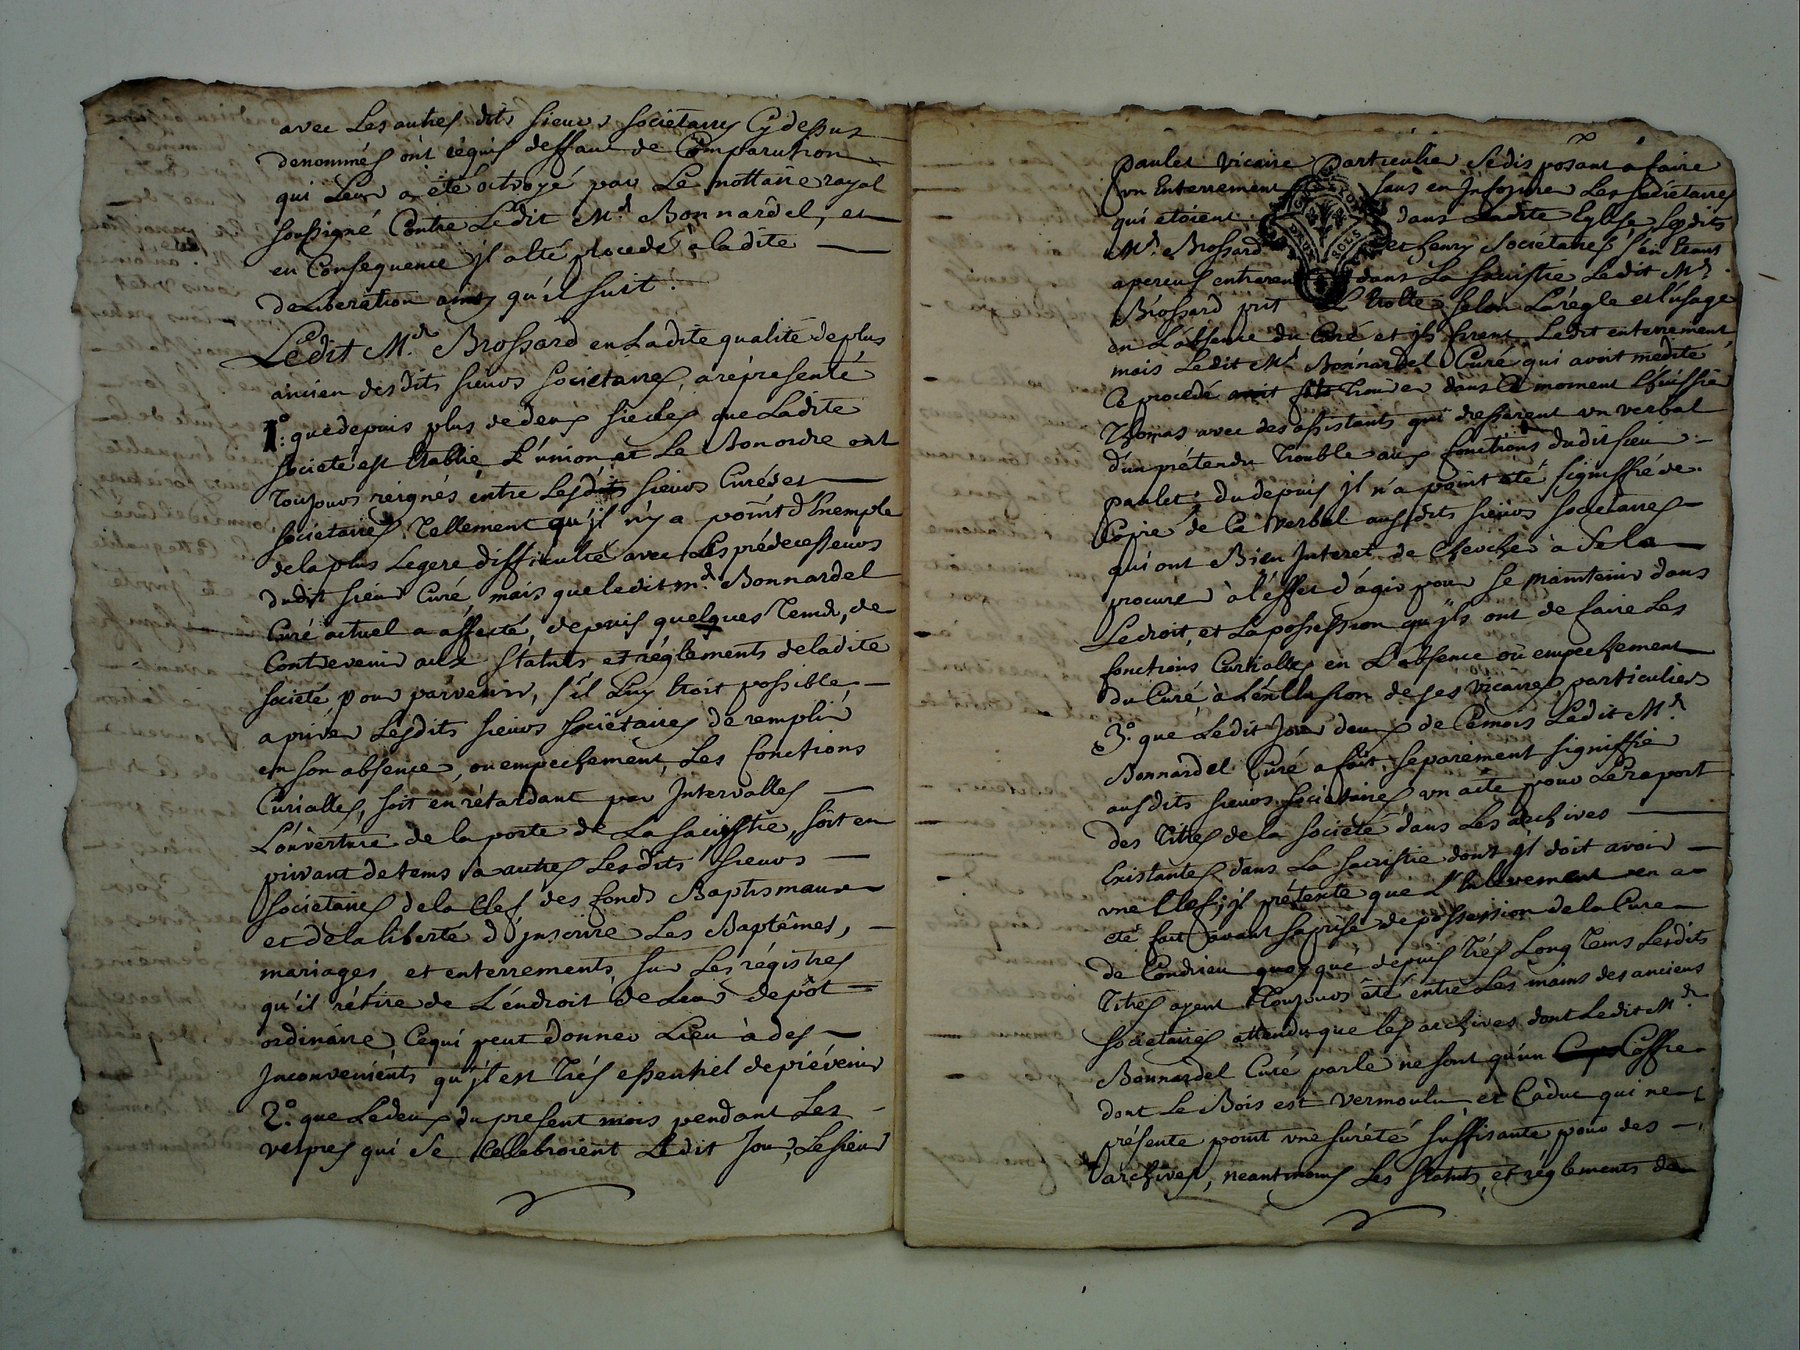 avec Les autres dits sieurs sociétaires Cy dessus
denommés ont réquis deffaut de Comparution
qui Leur a été octroyé par Le nottaire royal
soussigné Contre Ledit Mre. Bonnardel, et
en Conséquence jl a été procedé à la dite
deliberation ainsy qu'il suit.
Ledit Mre. Brossard en Ladite qualité de plus
ancien desdits sieurs sociétaires, a représenté
1°. que depuis plus de deux siecles que Ladite
societé est Etablie, L'union et Le Bon ordre ont
toujours réignés entre Lesdits sieurs Curés et
sociétaires, Tellement qu'jl n'y a point d'Exemple
de la plus Legere difficulté avec Les prédecesseurs
dudit sieur Curé, mais que ledit mre. Bonnardel
Curé actuel a affecté, depuis quelques Tems, de
Contrevenir aux statuts et réglements de ladite
societé pour parvenir, s'il Luy Etoit possible,
a priver Lesdits sieurs sociétaires de remplir
en son absence, ou empechement, Les fonctions
Curialles, soit en rétardant par Intervalles
L'ouverture de la porte de La sacristie, soit en
privant de tems à autres Lesdits sieurs
sociétaires de la Clef des fonds Baptismaux
et de la liberté d'jnscrire Les Baptêmes,
mariages, et enterrements, sur Les régistres
qu'il rétire de L'endroit de Leur depôt
ordinaire, Ce qui peut donner Lieu à des
Jnconvenients qu'jl est Trés essentiel de prévenir
2°. que Le deux du present mois pendant Les
vespres qui se Celebroient Ledit Jour, Le sieur
paulet vicaire particulier se disposant a faire
un Enterrement sans en Informer Les sociétaires
qui etoient dans Ladite Eglise, Lesdits
Mrs. Brossard et henry sociétaires s'en Etant
apercus entrerent dans La sacristie Ledit Mre.
Brossard prit L'Etolle selon La régle et l'usage
en L'absence du Curé et jls firent Ledit enterrement
mais Ledit Mre. Bonnardel Curé qui avoit medité
Ce procedé fit trouver dans Ce moment L'huissier
Thomas avec des assistants qui dresserent un verbal
d'un prétendu trouble aux fonctions dudit sieur
paulet; du depuis jl n'a point été signiffié de
Copie de Ce verbal auxdits sieurs sociétaires
qui ont Bien Interet de Chercher à se la
procurer à l'effet d'agir pour se maintenir dans
Le droit, et La possession qu'jls ont de faire Les
fonctions Curialles en L'absence ou empechement
du Curé à L'exclusion de ses vicaires particuliers
3°. que Ledit Jour deux de Ce mois Ledit Mre.
Bonnardel Curé a fait séparement signiffier
auxdits sieurs sociétaires, un acte pour Le raport
des Titres de la societé dans Les archives
Existantes dans La sacristie dont jl doit avoir
une Clef; jl prétente que L'Enlevement en a
été fait avant sa prise de possession de la Cure
de Condrieu quoyqué depuis trés Long Tems Lesdits
Titres ayent toujours été entre Les mains des anciens
sociétaires attendu que les archives dont Ledit Mre.
Bonnardel Curé parle ne sont qu'un Coffre
dont Le Bois est vermoulu et Caduc qui ne
présente point une sureté suffisante pour des
archives, neantmoins Les statuts, et réglements de